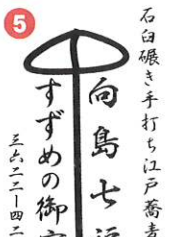 5
石臼碾き手打ち江戸蕎麦
向島七
すずめの御
三六二二ー四二